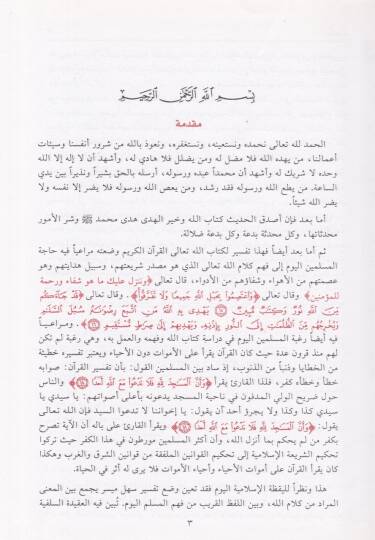 بسم الله الرحمن الرحيم
مقدمة
الحمد لله تعالى نحمده ونستعينه، ونستغفره، ونعوذ بالله من شرور أنفسنا وسيئات
أعمالنا، من يهده الله فلا مضل له ومن يضلل فلا هادي له، وأشهد أن لا إله إلا الله
وحده لا شريك له وأشهد أن محمداً عبده ورسوله، أرسله بالحق بشيراً ونذيراً بين يدي
الساعة. من يطع الله ورسوله فقد رشد، ومن يعص الله ورسوله فلا يضر إلا نفسه ولا
يضر الله شيئاً.
أما بعد فإن أصدق الحديث كتاب الله وخير الهدى هدى محمد ﷺ وشر الأمور
محدثاتها، وكل محدثة بدعة وكل بدعة ضلالة.
ثم أما بعد أيضاً فهذا تفسير لكتاب الله تعالى القرآن الكريم وضعته مراعياً فيه حاجة
المسلمين اليوم إلى فهم كلام الله تعالى الذي هو مصدر شريعتهم، وسبيل هدايتهم وهو
عصمتهم من الأهواء وشفاؤهم من الأدواء، قال تعالى ﴿وننزل عليك ما هو شفاء ورحمة
للمؤمنين﴾ وقال تعالى ﴿وَاعْتَصِمُوا بِحَبْلِ اللَّهِ جَمِيعًا وَلَا تَفَرَّقُوا﴾. وقال تعالى ﴿قَدْ جَاءَكُم
مِّنَ اللَّهِ نُورٌ وَكِتَابٌ مُّبِينٌ يَهْدِي بِهِ اللَّهُ مَنِ اتَّبَعَ رِضْوَانَهُ سُبُلَ السَّلَامِ
وَيُخْرِجُهُم مِّنَ الظُّلُمَاتِ إِلَى النُّورِ بِإِذْنِهِ، وَيَهْدِيهِمْ إِلَى صِرَاطٍ مُّسْتَقِيمٍ﴾. ومراعياً
فيه أيضاً رغبة المسلمين اليوم في دراسة كتاب الله وفهمه والعمل به، وهي رغبة لم تكن
لهم منذ قرون عدة حيث كان القرآن يقرأ على الأموات دون الأحياء ويعتبر تفسيره خطيئة
من الخطايا وذنباً من الذنوب، إذ ساد بين المسلمين القول: بأن تفسير القرآن: صوابه
خطأ وخطأه كفر، فلذا القارئ يقرأ ﴿وَأَنَّ الْمَسَاجِدَ لِلَّهِ فَلَا تَدْعُوا مَعَ اللَّهِ أَحَدًا﴾ والناس
حول ضريح الولي المدفون في ناحية المسجد يدعونه بأعلى أصواتهم: يا سيدي يا
سيدي كذا وكذا ولا يجرؤ أحد أن يقول: يا إخواننا لا تدعوا السيد فإن الله تعالى
يقول: ﴿وَأَنَّ الْمَسَاجِدَ لِلَّهِ فَلَا تَدْعُوا مَعَ اللَّهِ أَحَدًا﴾ ويقرأ القارئ على باله أن الآية تصرح
بكفر من لم يحكم بما أنزل الله، وأن أكثر المسلمين مورطون في هذا الكفر حيث تركوا
تحكيم الشريعة الإسلامية إلى تحكيم القوانين الملفقة من قوانين الشرق والغرب وهكذا
كان يقرأ القرآن على أموات الأحياء وأحياء الأموات فلا يرى له أثر في الحياة.
هذا ونظراً لليقظة الإسلامية اليوم فقد تعين وضع تفسير سهل ميسر يجمع بين المعنى
المراد من كلام الله، وبين اللفظ القريب من فهم المسلم اليوم. تُبين فيه العقيدة السلفية
٣